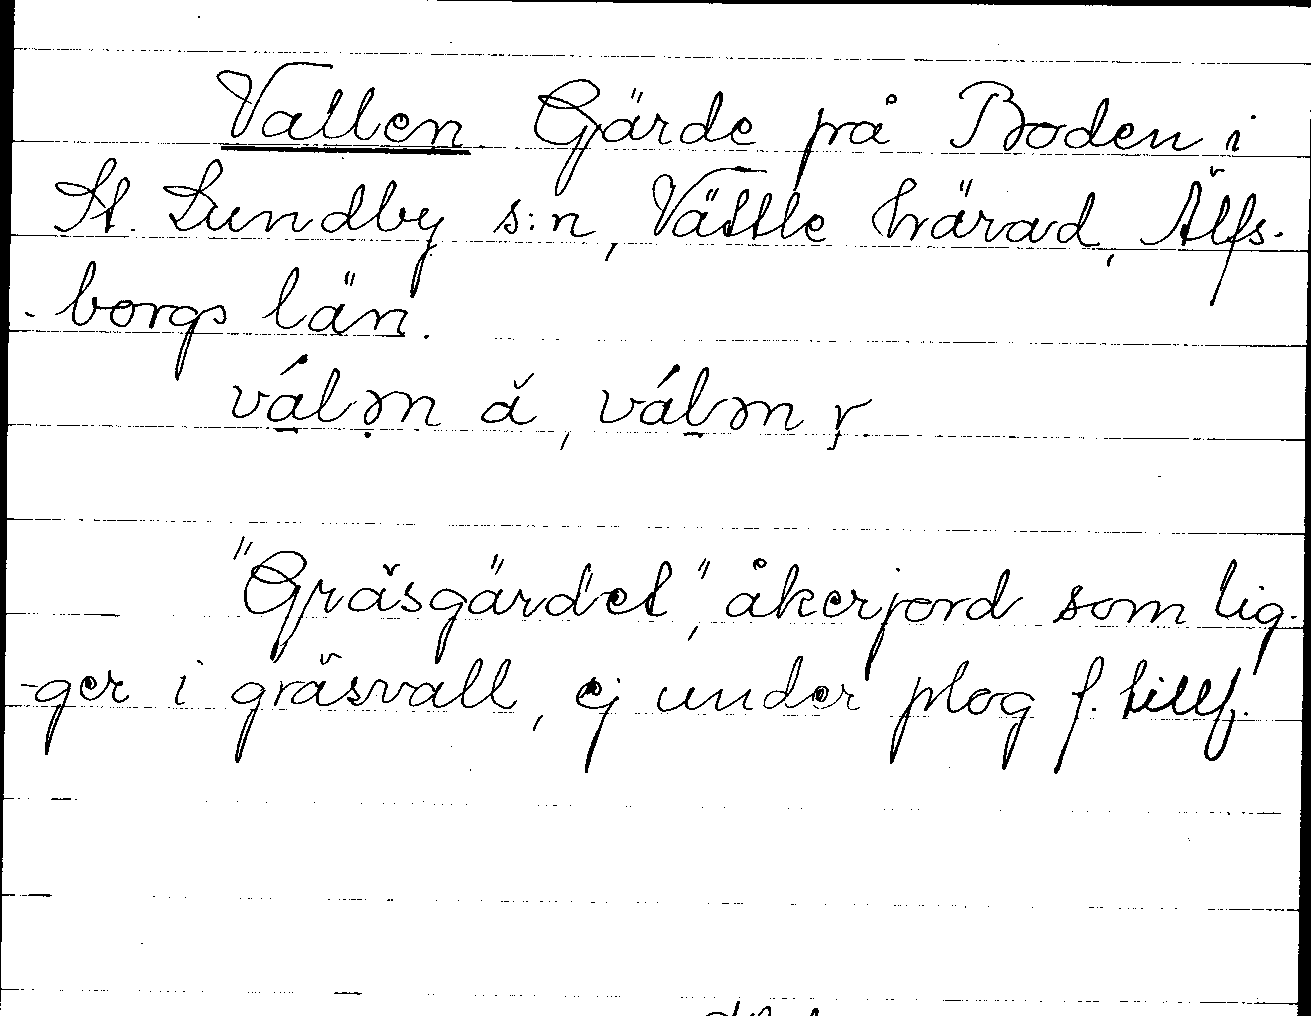 Vallen Gärde på Boden i
St. Lundby s:n, Vättle härad, Älfs-
-borgs län.
vál ə̣n ă, válən ṛ.
"Gräsgärdet", åkerjord som lig-
-ger i gräsvall, ej under plog f. tillf.